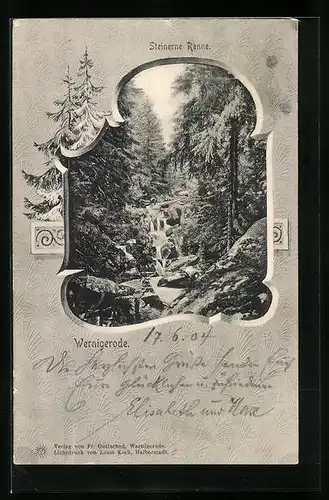 Steinerne Renne.
Wernigerode.
17.6.04
Die herzlichsten Grüße sendet Euch
Eure glücklichen u. zufriedenen
Elisabeth und Max
Verlag von Fr. Gottsched, Wernigerode.
Lichtdruck von Louis Koch, Halberstadt.